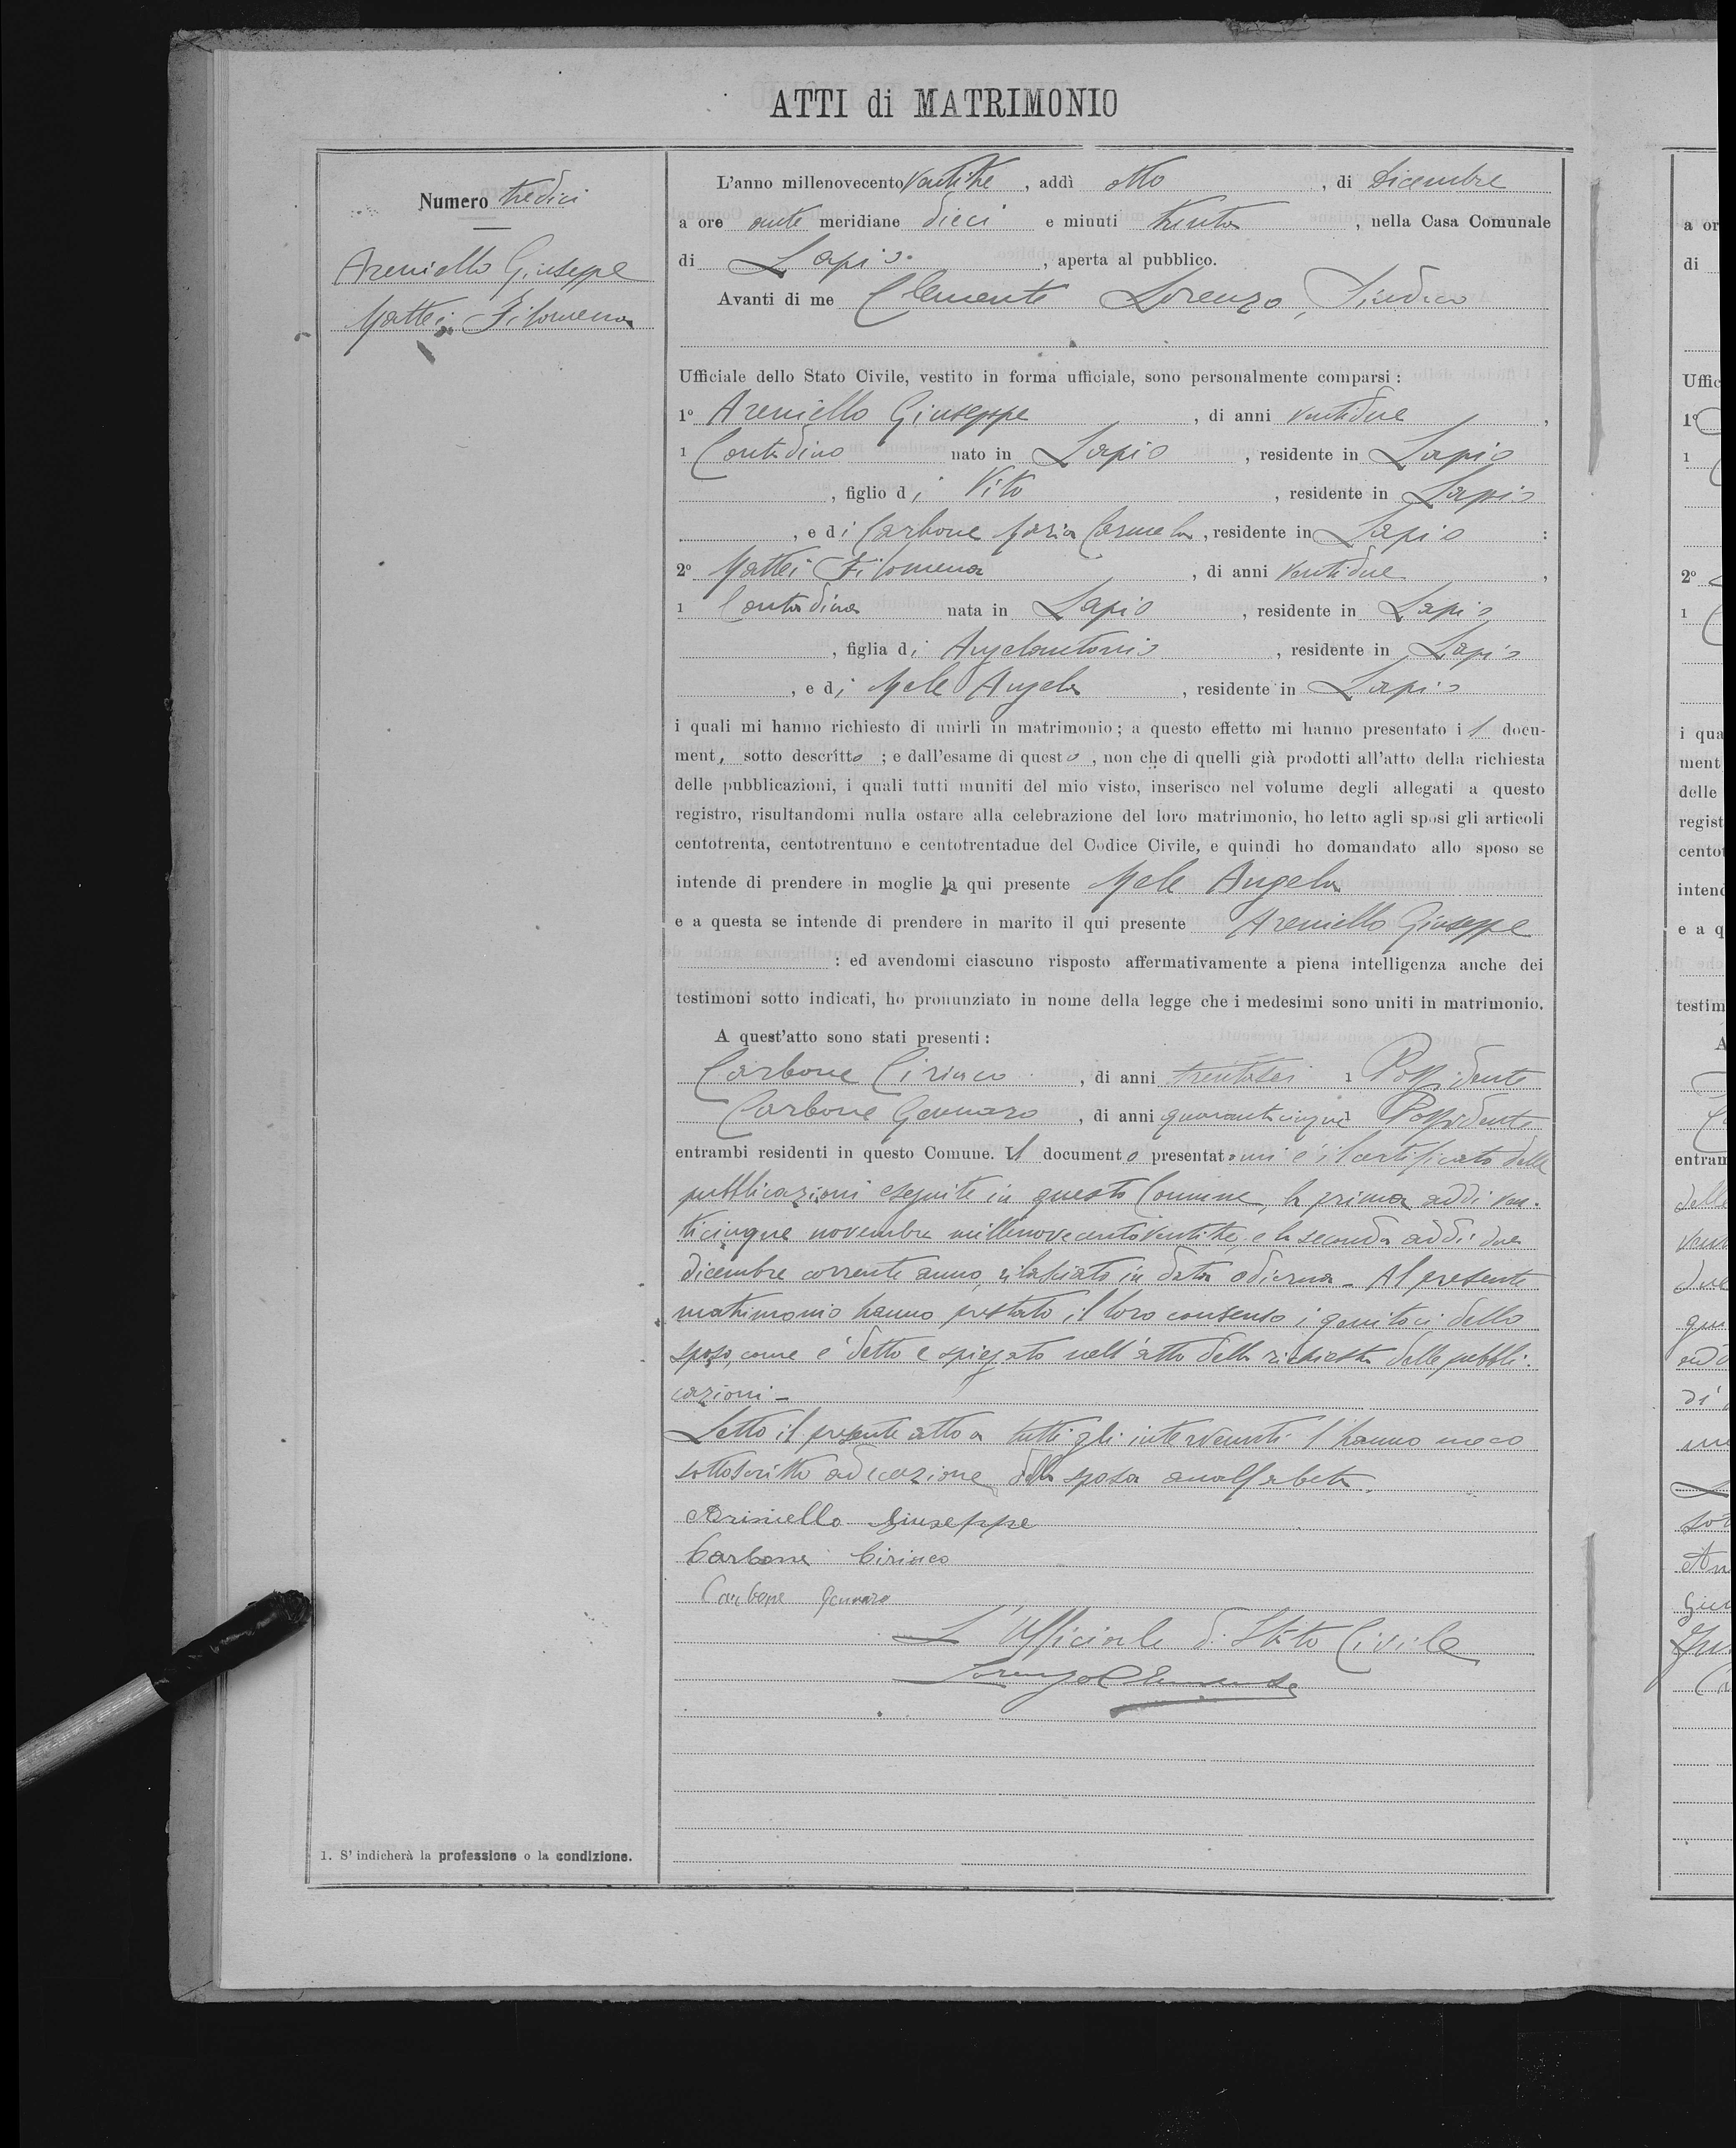 ATTI di MATRIMONIO
Numero tredici
Areniello Giuseppe
Mattei Filomena
L'anno millenovecentoventitre, addì otto, di Dicembre
a ore ante meridiane dieci e minuti trenta, nella Casa Comunale
di Lapio, aperta al pubblico.
Avanti di me Clemente Lorenzo, Sindaco
Ufficiale dello Stato Civile, vestito in forma ufficiale, sono personalmente comparsi:
1º Areniello Giuseppe, di anni ventidue,
1 Contadino nato in Lapio, residente in Lapio
, figlio di Vito, residente in Lapio
, e di Carbone Maria Carmela, residente in Lapio:
2º Mattei Filomena, di anni ventidue,
1 Contadina nata in Lapio, residente in Lapio
, figlia di Angelantonio, residente in Lapio
, e di Mele Angela, residente in Lapio
i quali mi hanno richiesto di unirli in matrimonio; a questo effetto mi hanno presentato il docu-
ment, sotto descritto; e dall'esame di questo, non che di quelli già prodotti all'atto della richiesta
delle pubblicazioni, i quali tutti muniti del mio visto, inserisco nel volume degli allegati a questo
registro, risultandomi nulla ostare alla celebrazione del loro matrimonio, ho letto agli sposi gli articoli
centotrenta, centotrentuno e centotrentadue del Codice Civile, e quindi ho domandato allo sposo se
intende di prendere in moglie la qui presente Mele Angela
e a questa se intende di prendere in marito il qui presente Areniello Giuseppe
: ed avendomi ciascuno risposto affermativamente a piena intelligenza anche dei
testimoni sotto indicati, ho pronunziato in nome della legge che i medesimi sono uniti in matrimonio.
A quest'atto sono stati presenti:
Carbone Ciriaco, di anni trentasei 1 Possidente
Carbone Gennaro, di anni quarantacinque 1 Possidente
entrambi residenti in questo Comune. Il documento presentatomi è il certificato delle
pubblicazioni eseguite in questo Comune, la prima addì ven-
ticinque novembre millenovecentoventitre, e la seconda addì due
dicembre corrente anno, rilasciato in data odierna - Al presente
matrimonio hanno prestato il loro consenso i genitori dello
sposo, come è detto e spiegato nell'atto della richiesta delle pubbli-
cazioni -
Letto il presente atto a tutti gli intervenuti l'hanno meco
sottoscritto ad eccezione della sposa analfabeta.
Ariniello Giuseppe
Carbone Ciriaco
Carbone Gennaro
L'Ufficiale di Stato Civile
Lorenzo Clemente
1. S'indicherà la professione o la condizione.